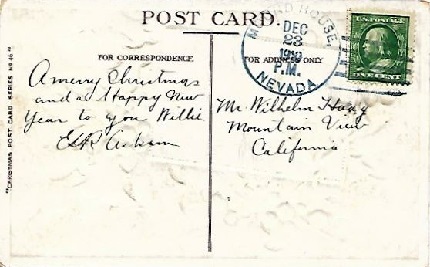 POST CARD.
FOR CORRESPONDENCE
FOR ADDRESS ONLY
HOUSE,
DEC
23
P.M.
NEVADA
U.S. POSTAGE
ONE CENT
A merry Christmas
and a Happy New
Year to you Willie
Mr Wilhelm
Mountain View
California
"CHRISTMAS" POST CARD SERIES